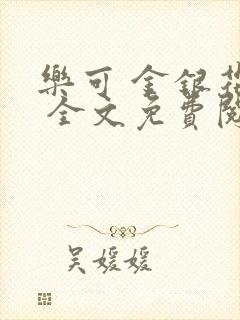 樂可 金銀花
全文免費閱
吳媛媛